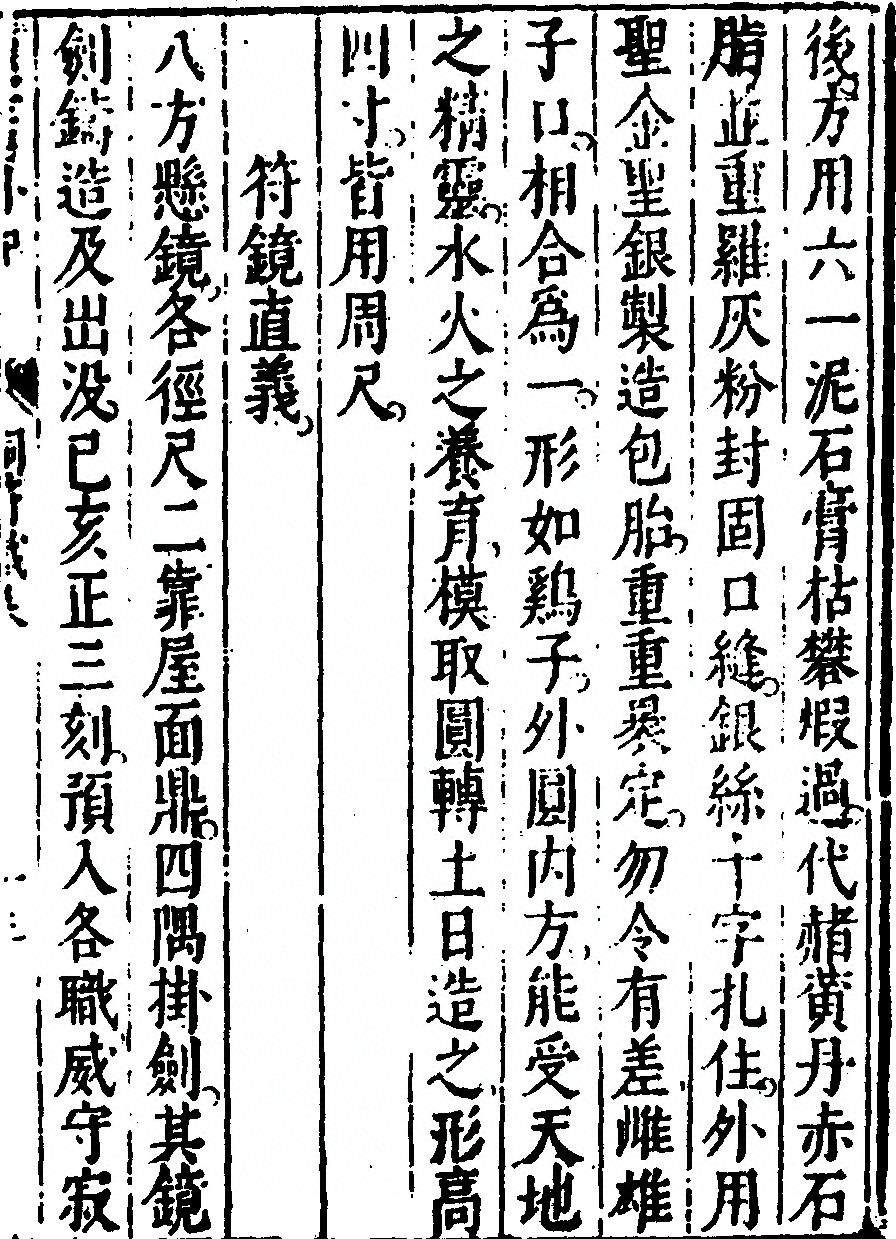 後方用六一泥石膏枯礬煆過代赭黃丹赤石
脂並重羅灰粉封固口縫銀絲十字扎住外用
聖金聖銀製造包胎重重墁定勿令有差雌雄
子口相合爲一形如鷄子外圓内方能受天地
之精靈水火之養育模取圓轉土日造之形高
四寸皆用周尺
符鏡直義
八方懸鏡各徑尺二靠屋面鼎四隅掛劍其鏡
劍鑄造及出没已亥正三刻預入各職威守寂